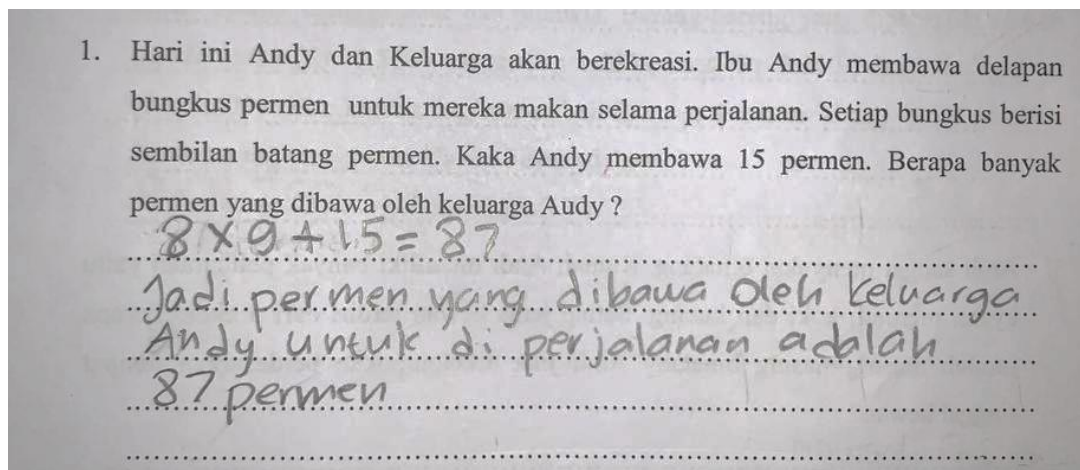 1. Hari ini Andy dan Keluarga akan berekreasi. Ibu Andy membawa delapan
bungkus permen untuk mereka makan selama perjalanan. Setiap bungkus berisi
sembilan batang permen. Kaka Andy membawa 15 permen. Berapa banyak
permen yang dibawa oleh keluarga Audy ?
8 x 9 + 15 = 87
Jadi permen yang dibawa oleh keluarga
Andy untuk di perjalanan adalah
87 permen